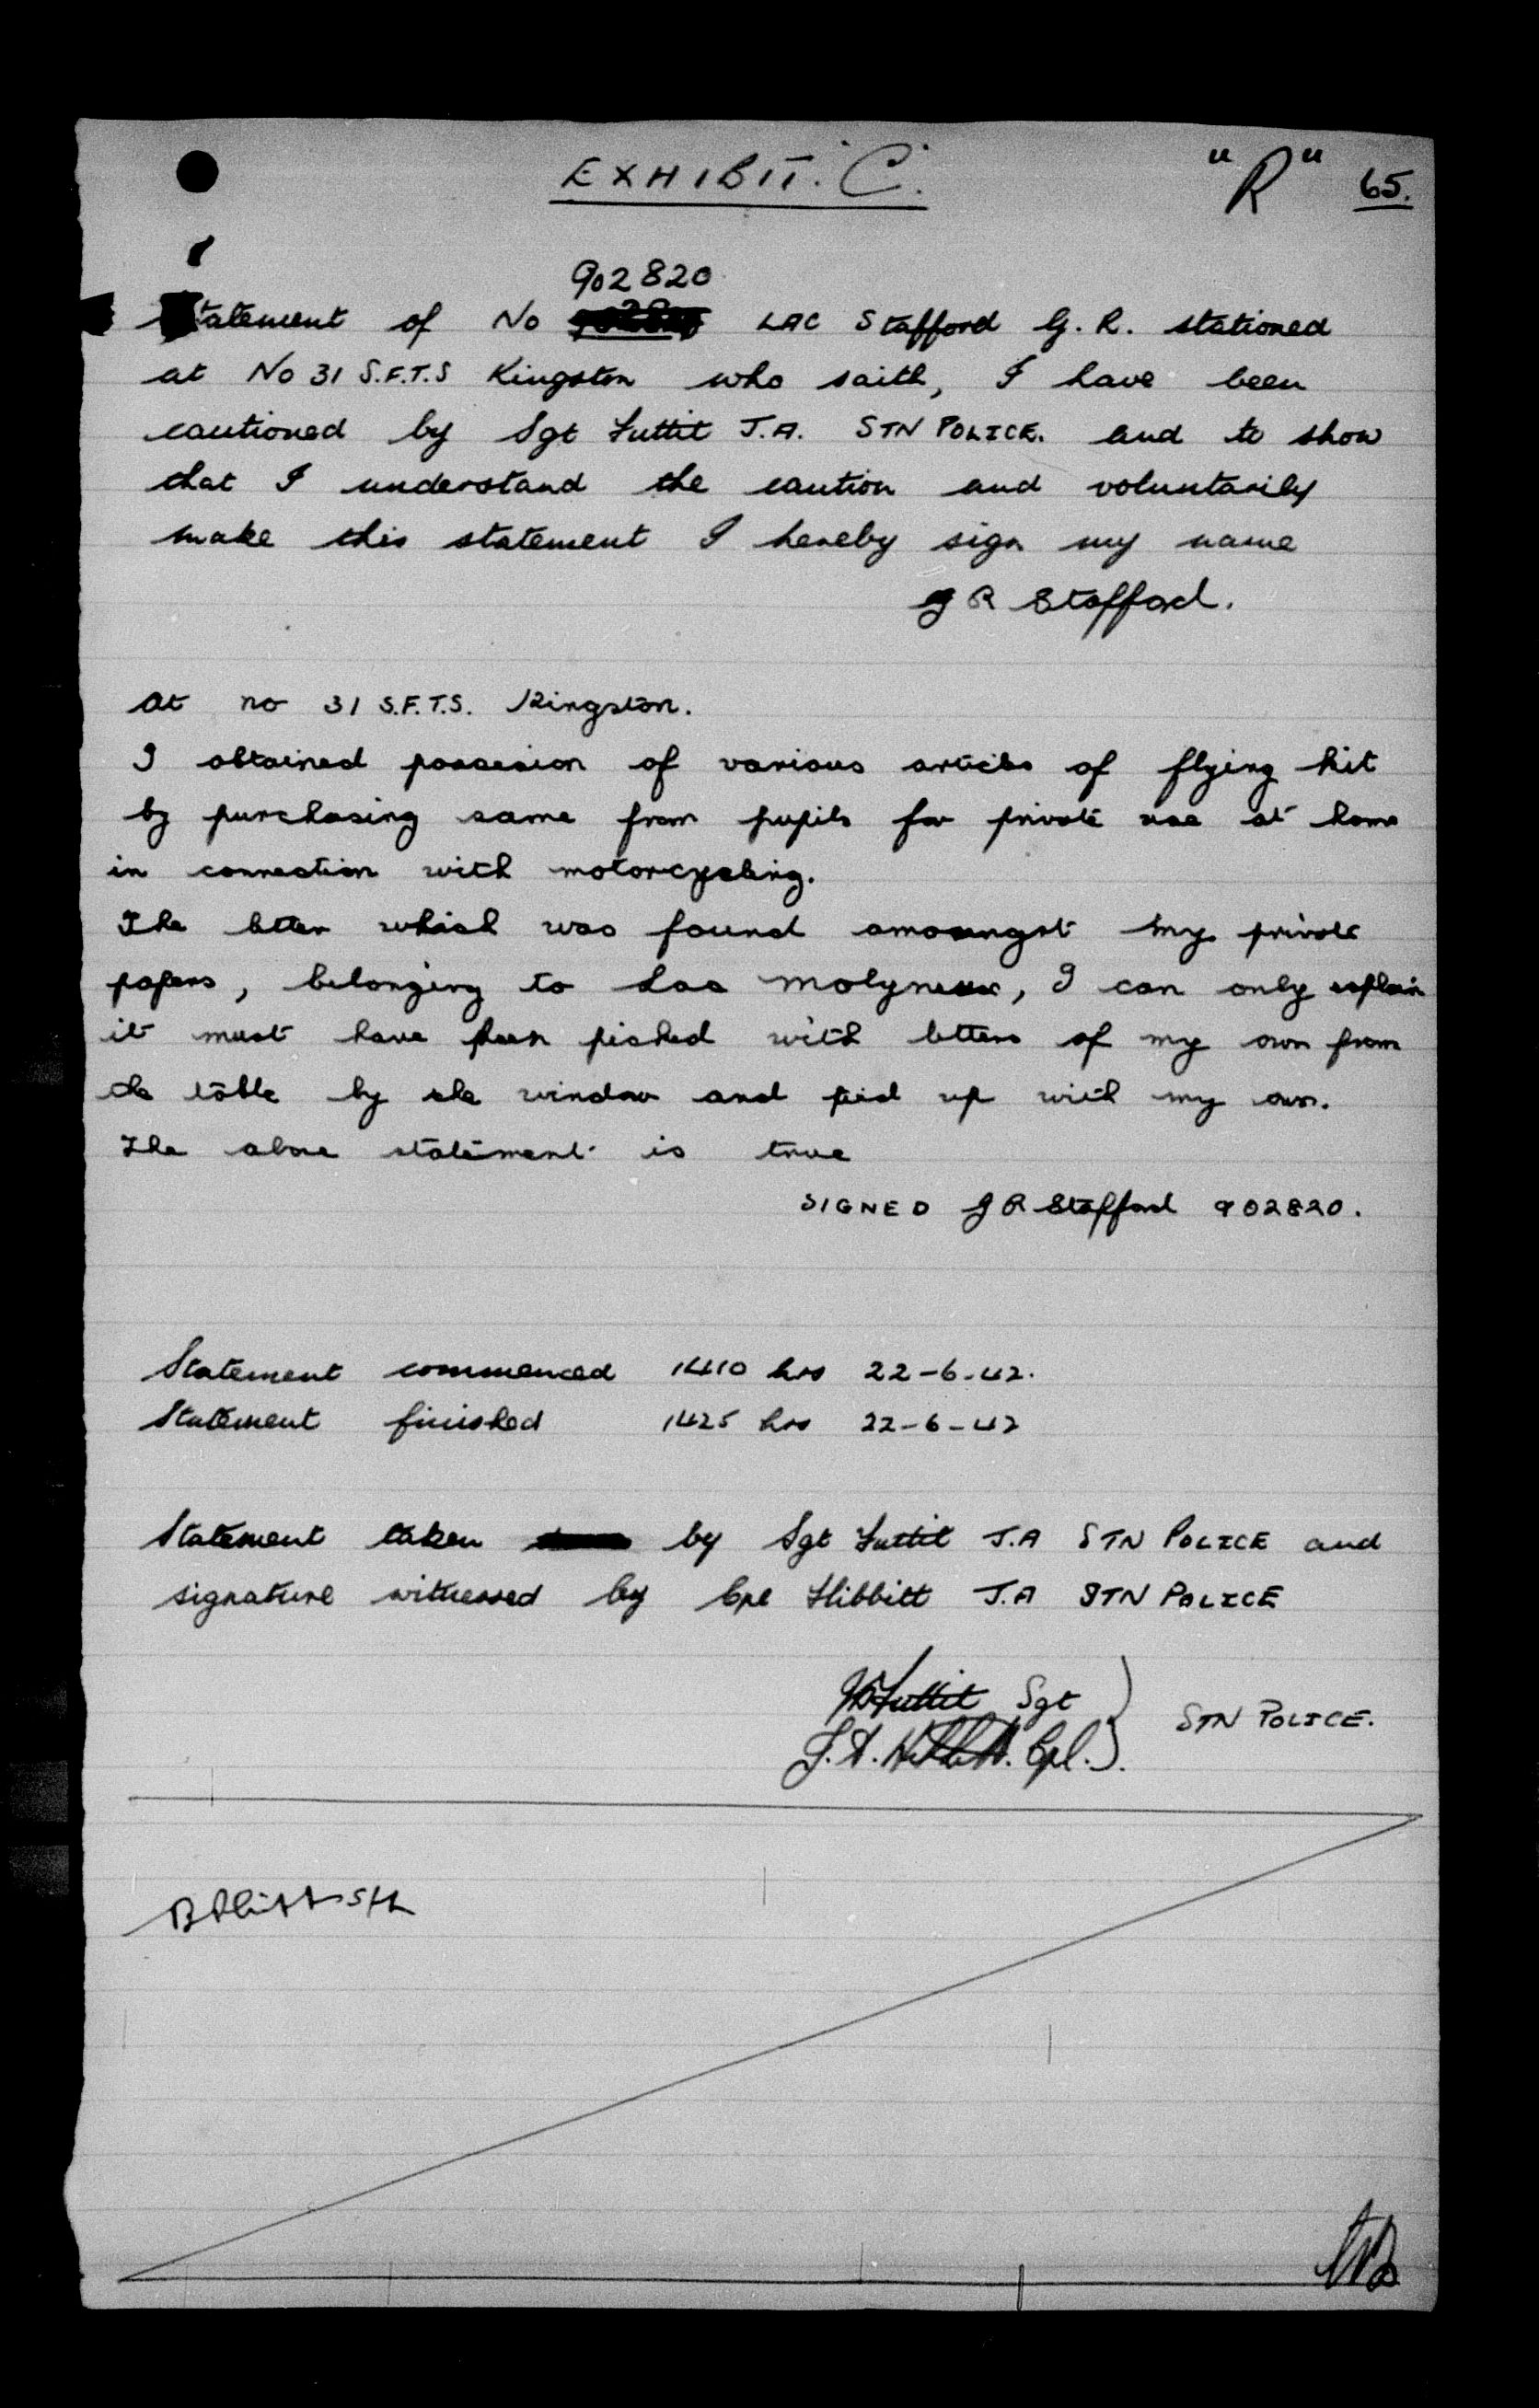 EXHIBIT. "C".
"R" 65.
902820
Statement of No LAC Stafford G. R. stationed
at No 31 S.F.T.S Kingston who saith, I have been
cautioned by Sgt Tuttit J.A. STN POLICE. and to show
that I understand the caution and voluntarily
make this statement I hereby sign my name
G R Stafford.
At no 31 S.F.T.S. Kingston.
I obtained possesion of various articles of flying kit
by purchasing same from pupils for private use at home
in connection with motorcycling.
The letter which was found amoungst my private
papers, belonging to Lac Molyneux, I can only explain
it must have been picked with letters of my own from
the table by the window and tied up with my own.
The above statement is true
SIGNED G R Stafford 902820.
Statement commenced 1410 hrs 22-6-42.
Statement finished 1425 hrs 22-6-42
Statement taken by Sgt Tuttit J.A STN POLICE and
signature witnessed by Cpl Hibbitt J.A STN POLICE
JATuttit Sgt
J.A. Hibbitt. Cpl.
STN POLICE.